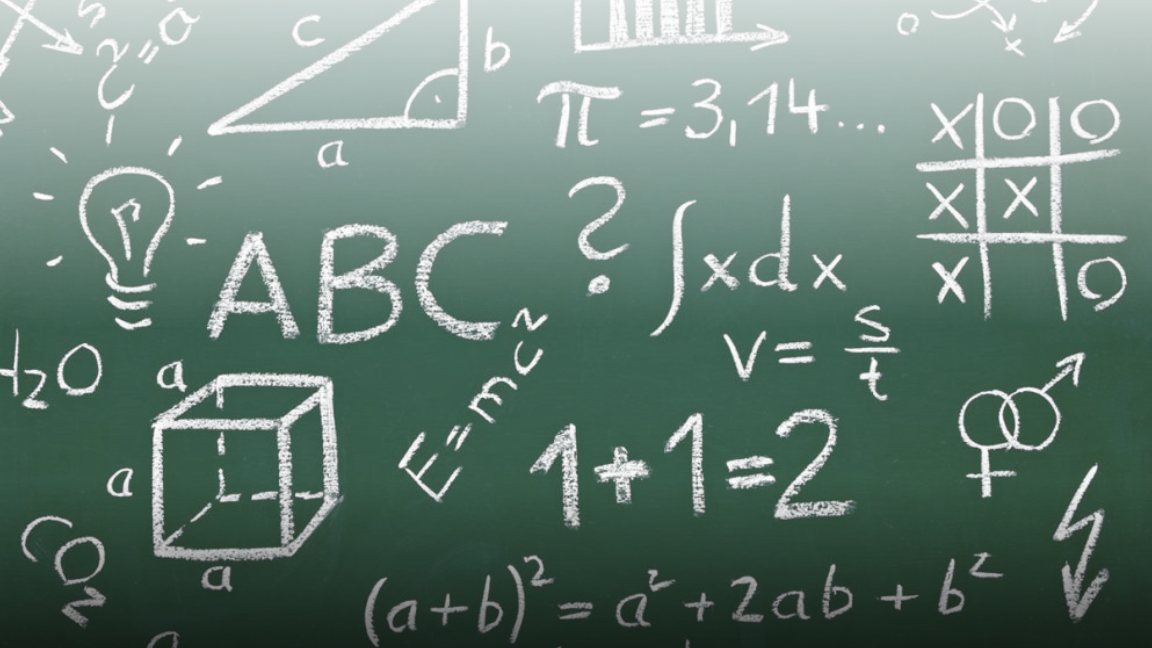 c² = a²
c
b
a
π = 3,14...
X O O
X X
X O
?
ABC
∫xdx
v = s/t
H₂O
a
E=mc²
a
1+1=2
CO₂
a
(a+b)² = a² + 2ab + b²